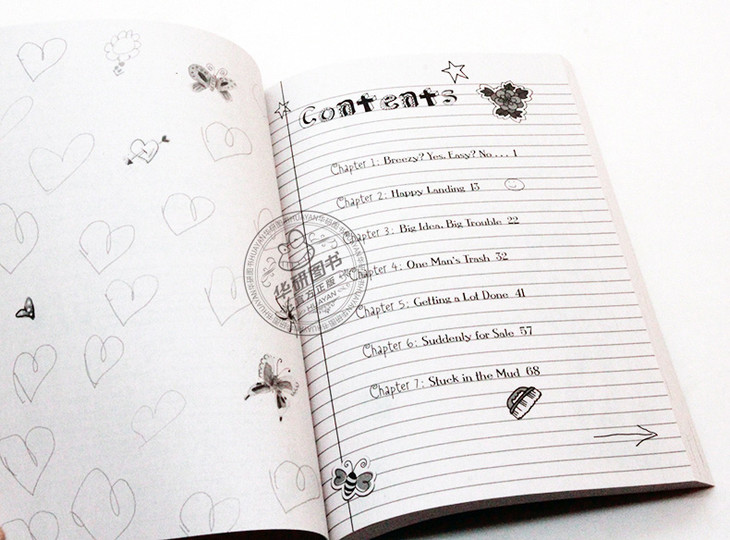 Contents
Chapter 1: Breezy? Yes. Easy? No . . . 1
Chapter 2: Happy Landing 13
Chapter 3: Big Idea, Big Trouble 22
Chapter 4: One Man's Trash 32
Chapter 5: Getting a Lot Done 41
Chapter 6: Suddenly for Sale 57
Chapter 7: Stuck in the Mud 68
华研图书
官方正版
HUAYAN